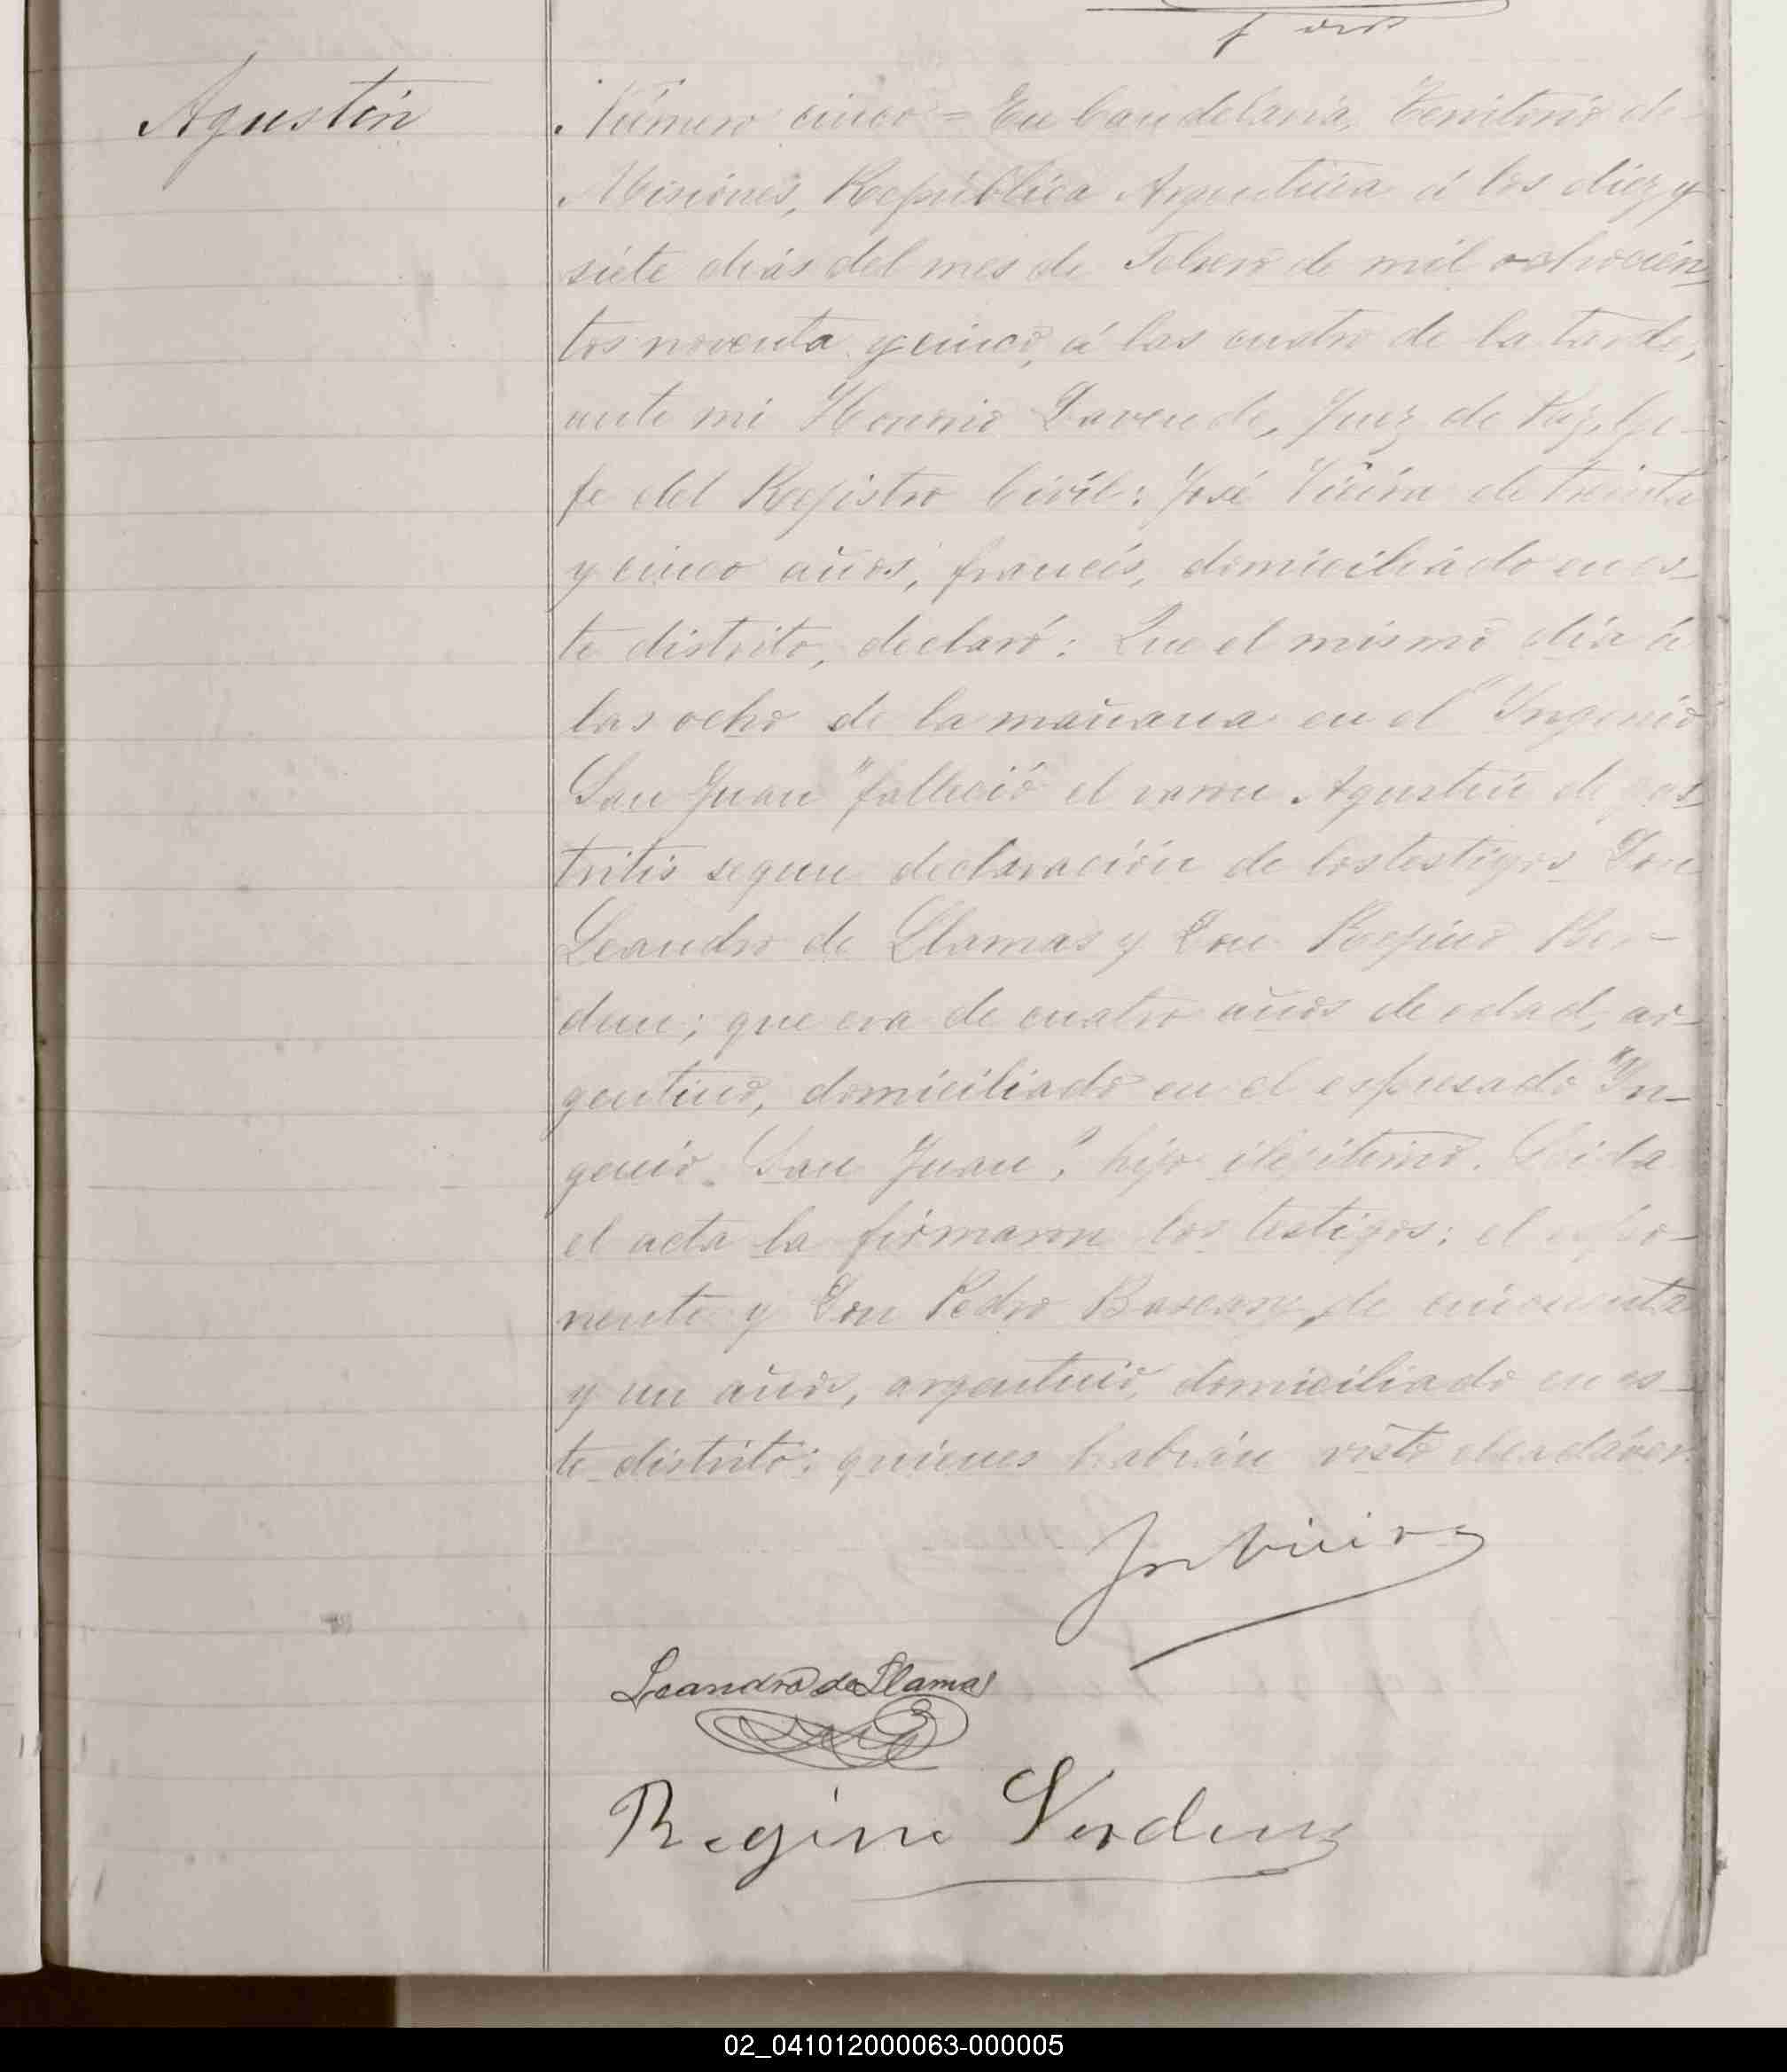 Agustín
Número cinco = En Candelaria, Territorio de
Misiones, República Argentina á los diez y
siete dias del mes de Febrero de mil ochocien
tos noventa y cinco, á las cuatro de la tarde,
ante mi Honorio Lavende, Juez de Paz, Ge-
fe del Registro Civil: José Vieira de treinta
y cinco años, francés, domiciliado en es-
te distrito, declaró: Que el mismo día á
las ocho de la mañana en el "Ingenio
San Juan" falleció el varon Agustin de gas
tritis segun declaración de los testigos Don
Leandro de Llamas y Don Regino Ber-
dun; que era de cuatro años de edad, ar-
gentino, domiciliado en el espresado "In-
genio San Juan", hijo ilegitimo. Leida
el acta la firmaron los testigos: el espo-
nente y Don Pedro de cincuenta
y un años, argentino, domiciliado en es-
te distrito; quienes habian visto el cadáver.
Vieira
Leandro de Llamas
Regino Verdun
02_041012000063-000005